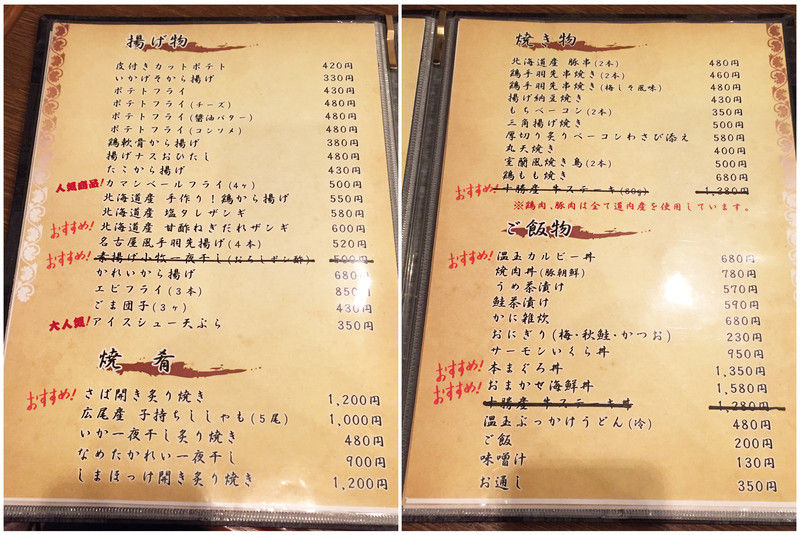 揚げ物
皮付きカットポテト 420円
いかげそから揚げ 330円
ポテトフライ 430円
ポテトフライ(チーズ) 480円
ポテトフライ(醤油バター) 480円
ポテトフライ(コンソメ) 480円
鶏軟骨から揚げ 380円
揚げナスおひたし 480円
たこから揚げ 430円
人気商品! カマンベールフライ(4ヶ) 500円
北海道産 手作り!鶏から揚げ 550円
北海道産 塩タレザンギ 580円
おすすめ! 北海道産 甘酢ねぎだれザンギ 600円
名古屋風手羽先揚げ(4本) 520円
おすすめ! 素揚げ小牧一夜干し(おろしポン酢) 500円
かれいから揚げ 680円
エビフライ(3本) 850円
ごま団子(3ヶ) 430円
大人気! アイスシュー天ぷら 350円
焼肴
おすすめ! さば開き炙り焼き 1,200円
広尾産 子持ちししゃも(5尾) 1,000円
いか一夜干し炙り焼き 480円
なめたかれい一夜干し 900円
しまほっけ開き炙り焼き 1,200円
焼き物
北海道産 豚串(2本) 480円
鶏手羽先串焼き(2本) 460円
鶏手羽先串焼き(梅しそ風味) 480円
揚げ納豆焼き 430円
もちベーコン(2本) 350円
三角揚げ焼き 500円
厚切り炙りベーコンわさび添え 580円
丸天焼き 400円
室蘭風焼き鳥(2本) 500円
鶏もも焼き 680円
おすすめ! 十勝産 牛ステーキ(80g) 1,380円
※鶏肉、豚肉は全て道内産を使用しています。
ご飯物
おすすめ! 温玉カルビー丼 680円
焼肉丼(豚朝鮮) 780円
うめ茶漬け 570円
鮭茶漬け 590円
かに雑炊 680円
おにぎり(梅・秋鮭・かつお) 230円
サーモンいくら丼 950円
おすすめ! 本まぐろ丼 1,350円
おすすめ! おまかせ海鮮丼 1,580円
十勝産 牛ステーキ丼 1,280円
温玉ぶっかけうどん(冷) 480円
ご飯 200円
味噌汁 130円
お通し 350円